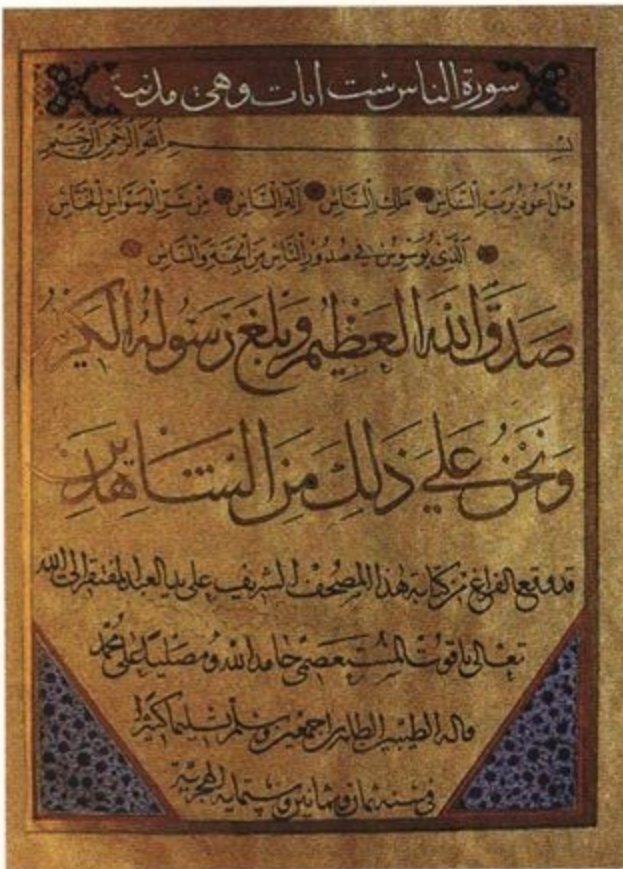 سورة الناس ست ايات وهي مدنية
بسم الله الرحمن الرحيم
قُلْ أَعُوذُ بِرَبِّ النَّاسِ مَلِكِ النَّاسِ إِلَهِ النَّاسِ مِنْ شَرِّ الْوَسْوَاسِ الْخَنَّاسِ
الَّذِي يُوَسْوِسُ فِي صُدُورِ النَّاسِ مِنَ الْجِنَّةِ وَالنَّاسِ
صَدَقَ اللهُ العَظِيمُ وَبَلَّغَ رَسُولُهُ الكَرِيمُ
وَنَحْنُ عَلَى ذَلِكَ مِنَ الشَّاهِدِينَ
قد وقع الفراغ من كتابة هذا المصحف الشريف على يد العبد المفتقر الى الله
تعالى ياقوت المستعصمي حامدا لله ومصليا على محمد
واله الطيبين الطاهرين اجمعين وسلم تسليما كثيرا
في سنه ثمان وثمانين وستمايه الهجرية